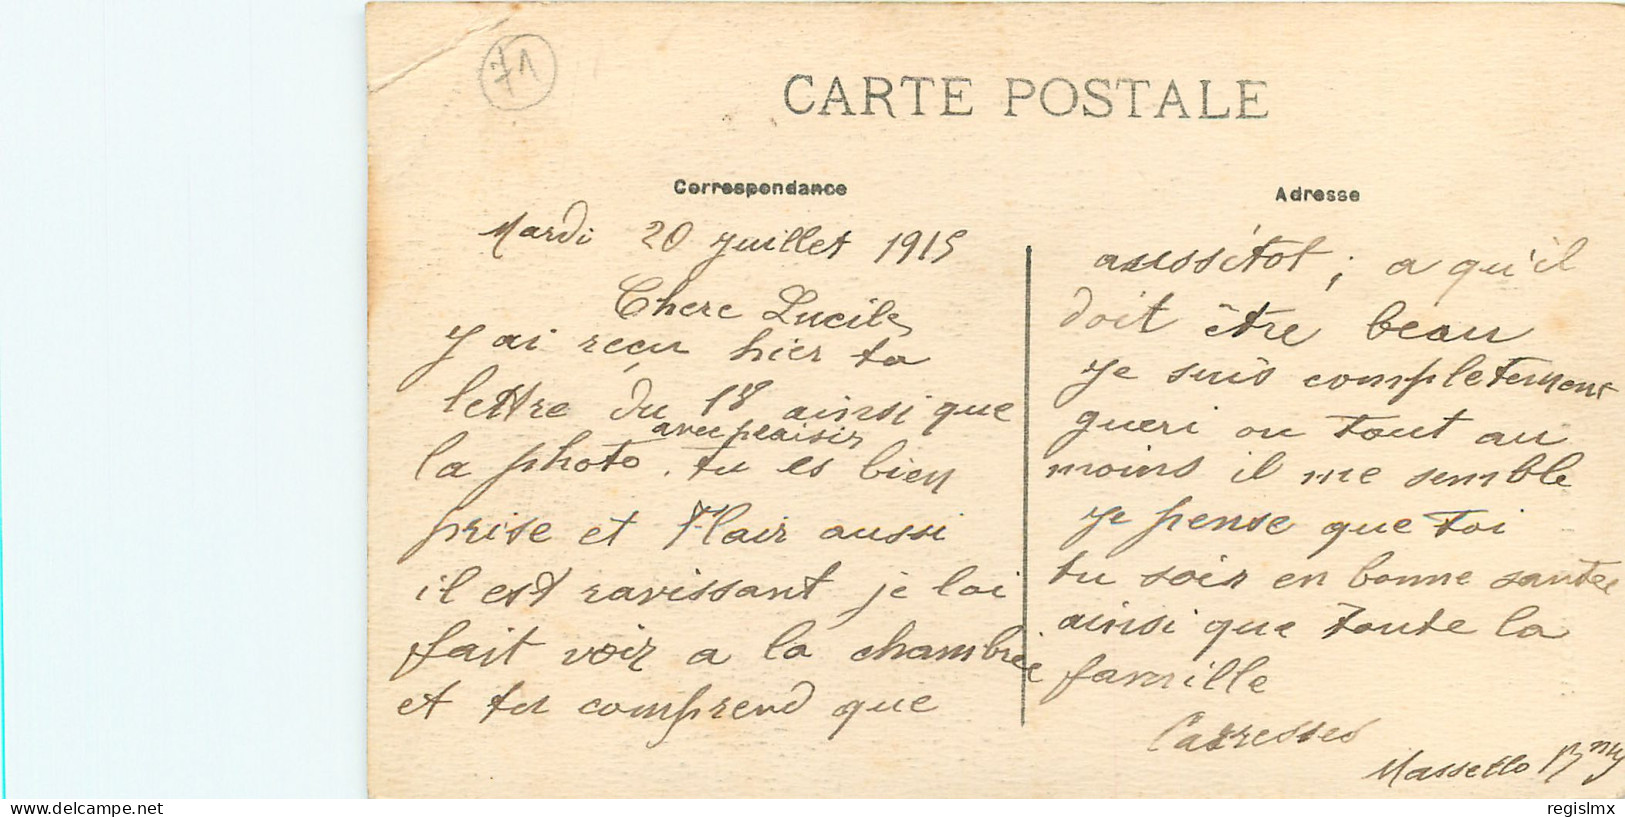 71
CARTE POSTALE
Correspondance
Mardi 20 juillet 1915
Chere Lucile
J'ai reçu hier ta
lettre du 18 ainsi que
avec plaisir
la photo. tu es bien
prise et Flair aussi
il est ravissant je lai
fait voir a la chambrée
et tu comprend que
Adresse
aussitot ; a qu'il
doit être beau
Je suis completement
gueri ou tout au
moins il me semble
Je pense que toi
tu sois en bonne santée
ainsi que toute la
famille
Carresses
Massello
delcampe.net
regislmx